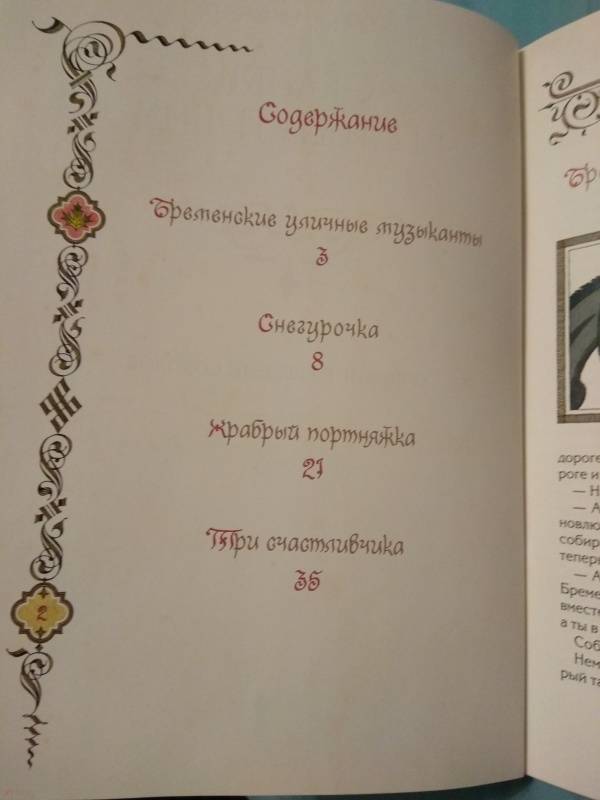 Содержание
Бременские уличные музыканты
3
Снегурочка
8
Храбрый портняжка
21
Три счастливчика
35
2
Бре
дороге
роге и
— Н
— А
новлю
собир
теперь
— А
Бреме
вместе
а ты в
Соб
Нем
рый та